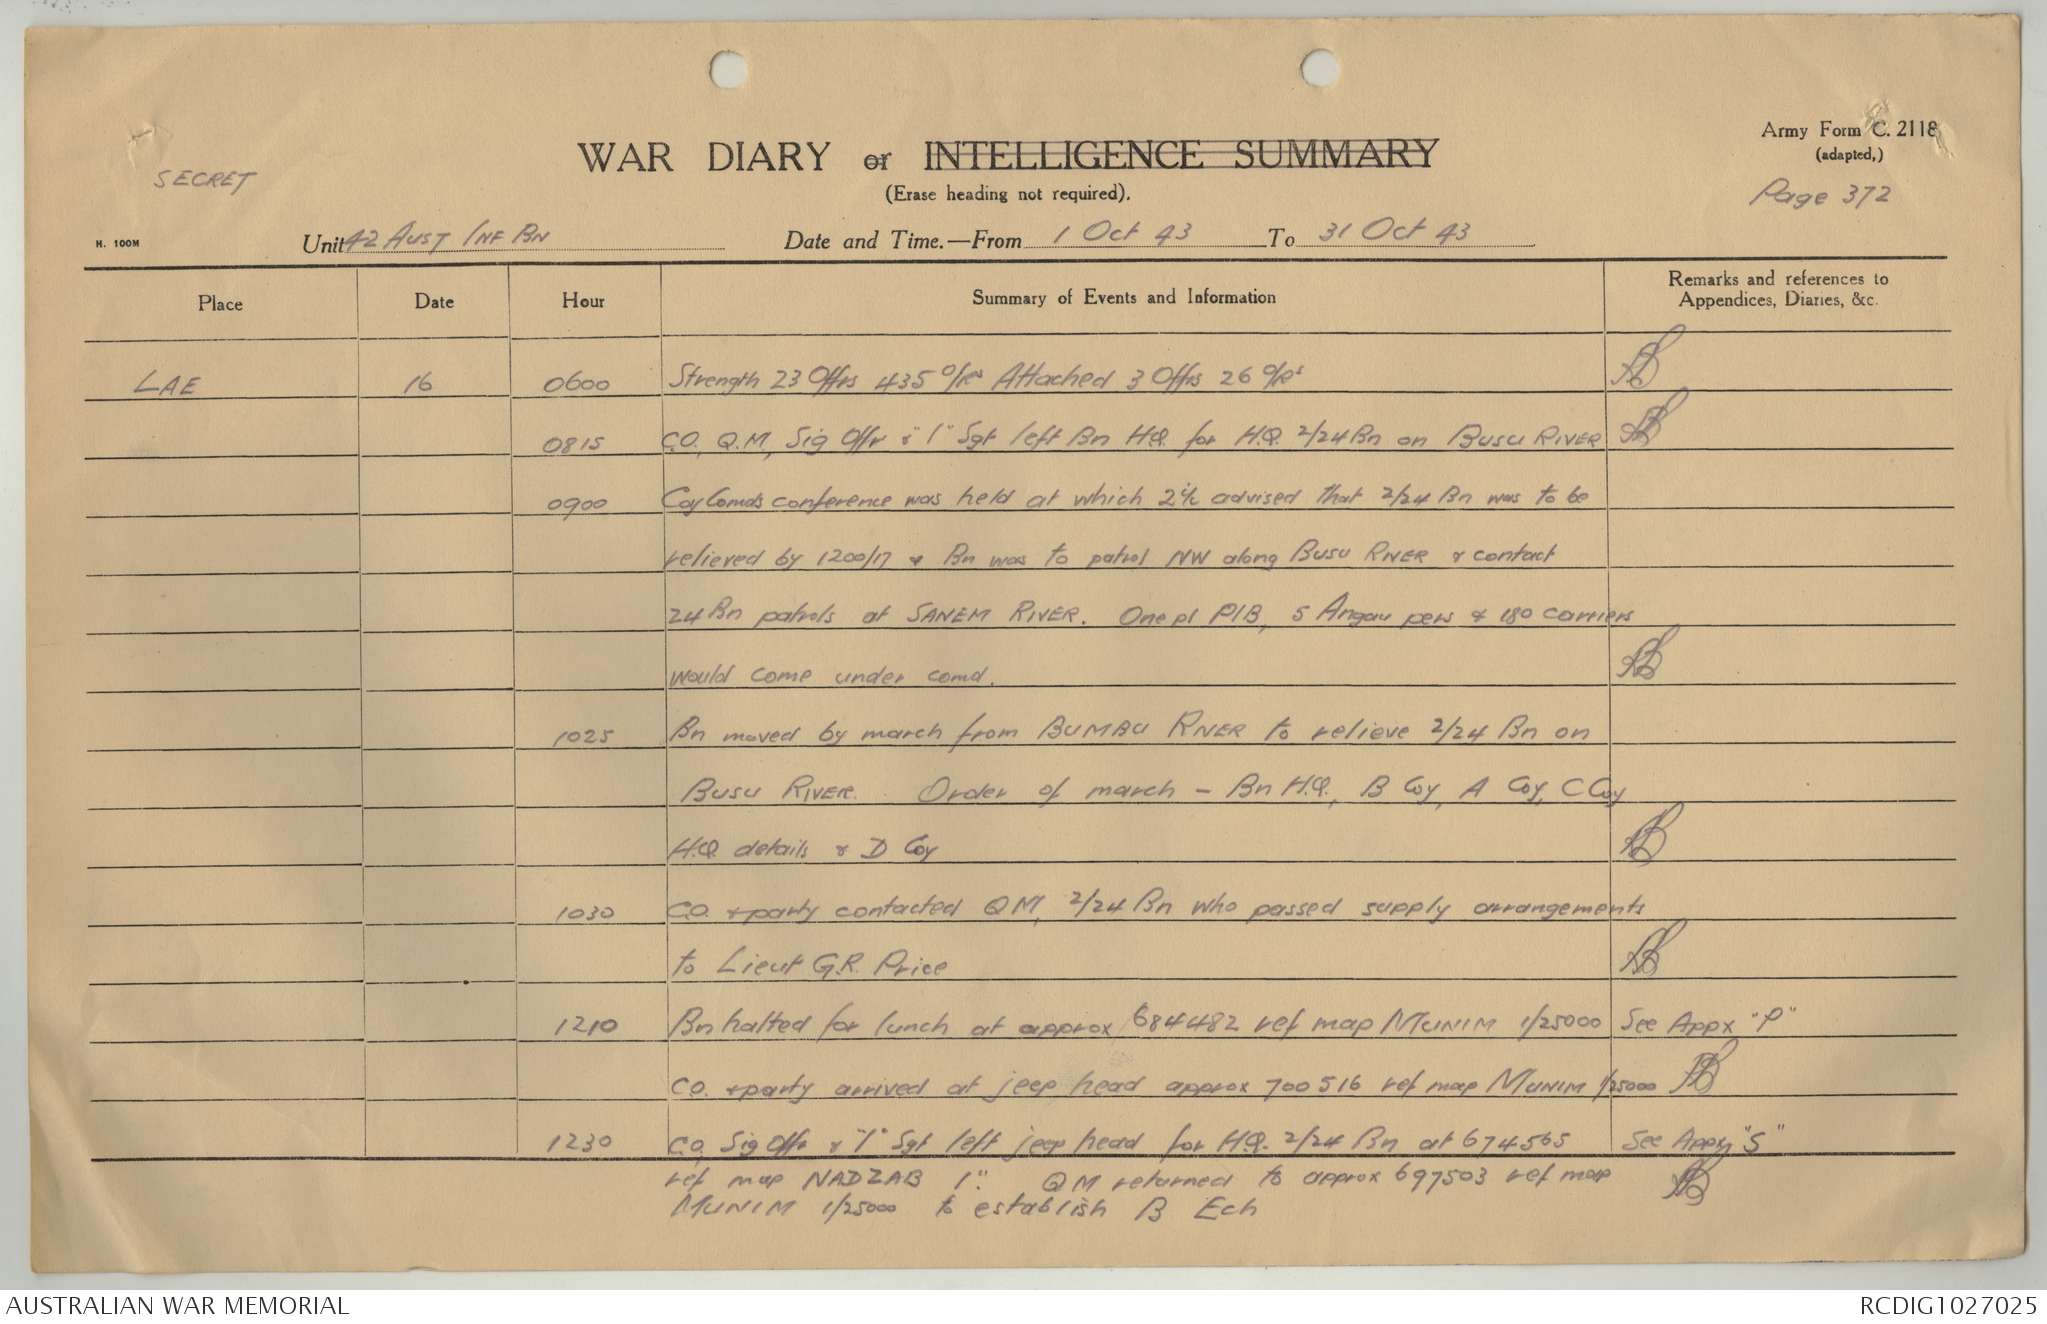 Army Form C. 2118
(adapted,)
WAR DIARY or INTELLIGENCE SUMMARY
(Erase heading not required).
SECRET
Page 372
H. 100M
Unit 42 AUST INF BN Date and Time.—From 1 Oct 43 To 31 Oct 43
Place Date Hour Summary of Events and Information Remarks and references to Appendices, Diaries, &c.
LAE 16 0600 Strength 23 Offrs 435 O/Rs Attached 3 Offrs 26 O/Rs
0815 C.O, Q.M, Sig Offr & "I" Sgt left Bn H.Q. for H.Q. 2/24 Bn on BUSU RIVER
0900 Coy Comds conference was held at which 2i/c advised that 2/24 Bn was to be
relieved by 1200/17 & Bn was to patrol NW along BUSU RIVER & contact
24 Bn patrols at SANEM RIVER. One pl PIB, 5 Angau pers & 180 carriers
would come under comd.
1025 Bn moved by march from BUMBU RIVER to relieve 2/24 Bn on
BUSU RIVER. Order of march - Bn H.Q, B Coy, A Coy, C Coy
H.Q. details & D Coy
1030 C.O. & party contacted QM, 2/24 Bn who passed supply arrangements
to Lieut G.R. Price
1210 Bn halted for lunch at approx 684482 ref map MUNIM 1/25000 See Appx "P"
C.O. & party arrived at jeep head approx 700516 ref map MUNIM 1/25000
1230 C.O, Sig Offr & "I" Sgt left jeep head for H.Q. 2/24 Bn at 674565 See Appx "S"
ref map NADZAB 1". QM returned to approx 697503 ref map
MUNIM 1/25000 to establish B Ech
AUSTRALIAN WAR MEMORIAL RCDIG1027025